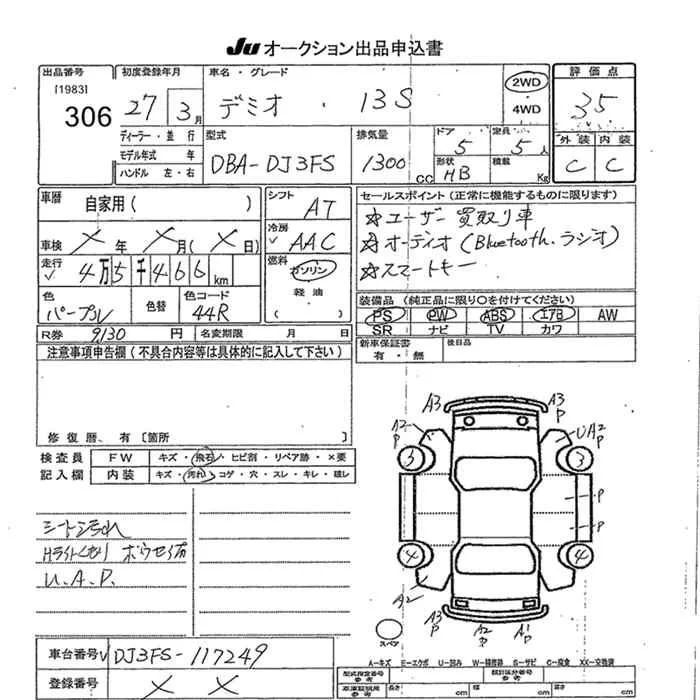 JU オークション出品申込書
出品番号 初度登録年月 車名・グレード 評価点
[1983] 306 27 3月 デミオ ・ 13S 2WD 4WD 35
ディーラー・並行 型式 排気量 ドア 定員 外装 内装
モデル年式 年 DBA-DJ3FS 1300cc 5 5人 C C
ハンドル 左・右 形状 HB 積載 Kg
車暦 自家用( ) シフト AT セールスポイント(正常に機能するものに限ります)
☆ユーザー買取り車
車検 ×年 ×月(×日) 冷房 ✓ AAC ☆オーディオ(Bluetooth.ラジオ)
走行 ✓ 4万5千466km 燃料 ガソリン ☆スマートキー
軽油 ( )
色 パープル 色替 色コード 44R 装備品(純正品に限り○を付けてください)
PS PW ABS エアB AW
R券 9130円 名変期限 月 日 SR ナビ TV カワ
注意事項申告欄(不具合内容等は具体的に記入して下さい) 新車保証書 有・無 後日品
修復暦、有〔箇所 〕
検査員 FW キズ・飛石・ヒビ割・リペア跡・×要
記入欄 内装 キズ・汚れ・コゲ・穴・スレ・キレ・破レ
A3 A3 P
A2 P UA2 P
3 3
P
P
4 4
A2
A3 P A2 P A1 P
スペア
シート汚れ
Hライトくもり ボウセイ有
U.A.P.
車台番号 ✓ DJ3FS-117249
登録番号 × ×
A-キズ E-エクボ U-凹み W-補修跡 S-サビ C-腐食 XX-交換済
型式指定番号 参考 類別区分番号 参考
cm cm cm